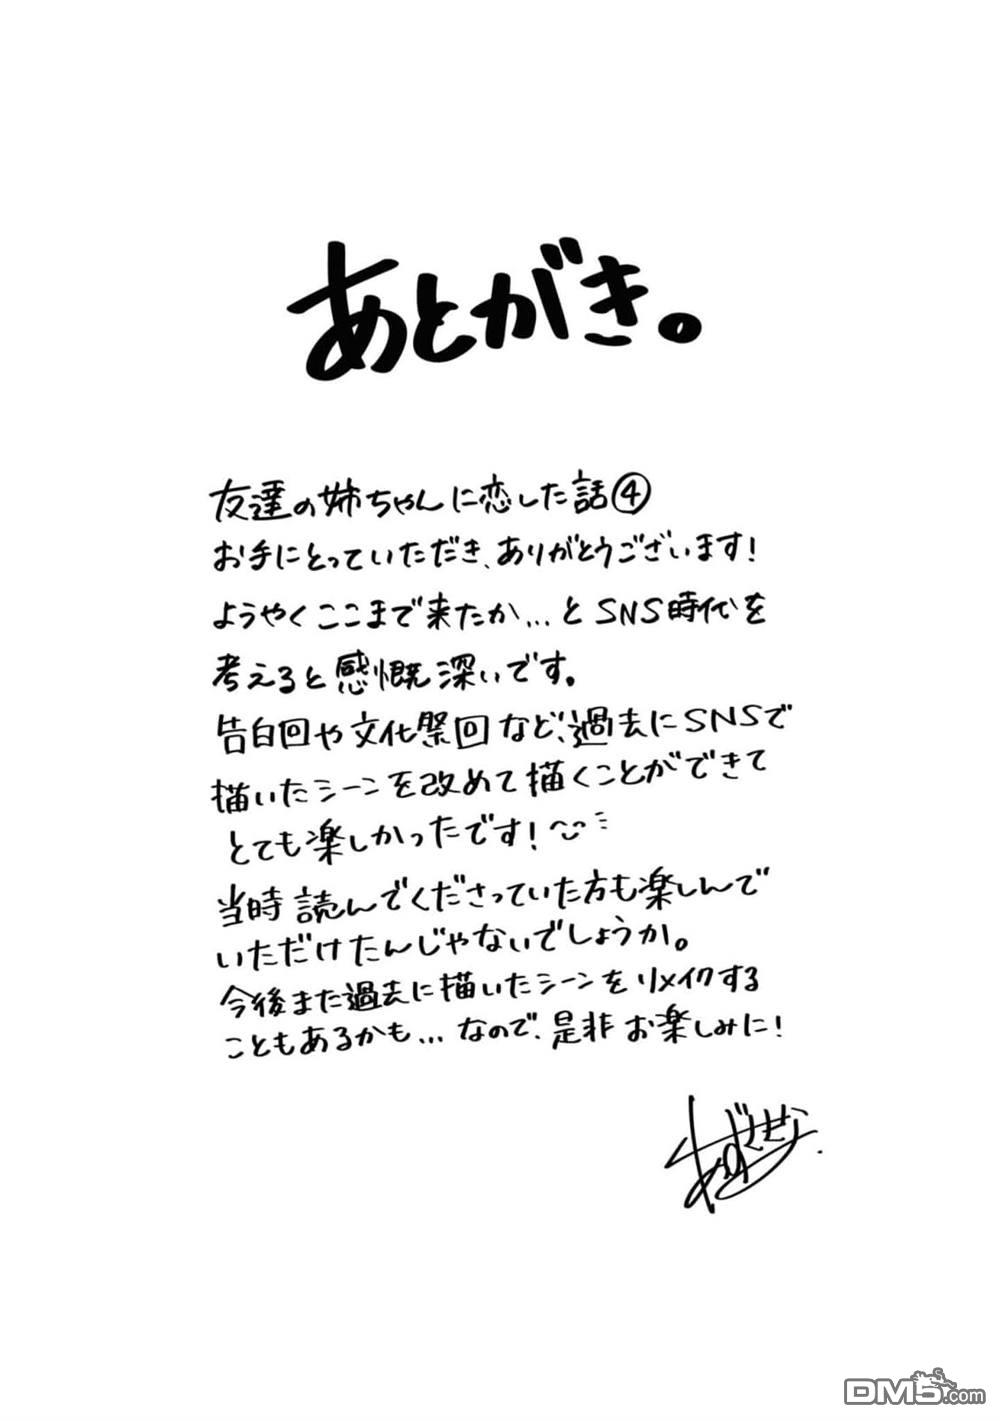 あとがき。
友達の姉ちゃんに恋した話④
お手にとっていただき、ありがとうございます!
ようやくここまで来たか...とSNS時代を
考えると感慨深いです。
告白回や文化祭回など、過去にSNSで
描いたシーンを改めて描くことができて
とても楽しかったです!
当時読んでくださっていた方も楽しんで
いただけたんじゃないでしょうか。
今後また過去に描いたシーンをリメイクする
こともあるかも...なので、是非お楽しみに!
DM5.com